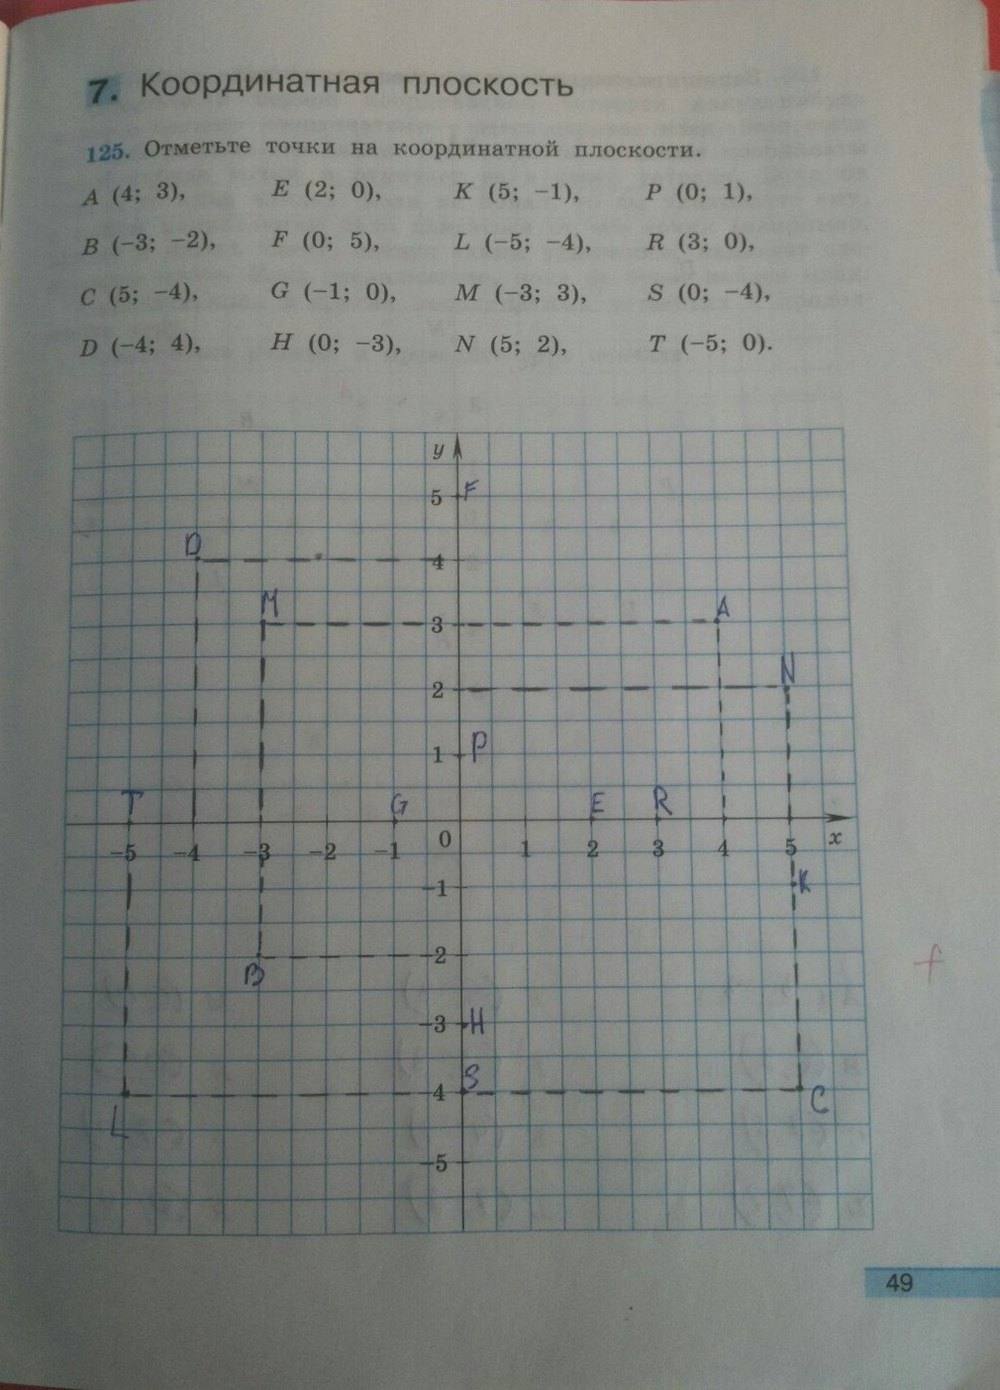 7. Координатная плоскость
125. Отметьте точки на координатной плоскости.
A (4; 3), E (2; 0), K (5; −1), P (0; 1),
B (−3; −2), F (0; 5), L (−5; −4), R (3; 0),
C (5; −4), G (−1; 0), M (−3; 3), S (0; −4),
D (−4; 4), H (0; −3), N (5; 2), T (−5; 0).
y
5 F
D
4
M 3 A
2 N
1 P
T G E R
−5 −4 −3 −2 −1 0 1 2 3 4 5 x
−1 K
−2
B
−3 H
S
−4 C
L
−5
49